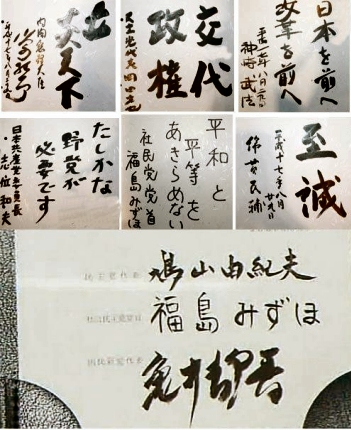 内閣総理大臣
天下
交代
政権
民主党代表 岡田克也
日本を前へ
改革を前へ
神崎武法
たしかな
野党が
必要です
日本共産党委員長
志位和夫
平和と
平等を
あきらめない
社民党党首
福島みずほ
至誠
平成十七年八月廿九日
綿貫民輔
民主党代表 鳩山由紀夫
社会民主党党首 福島みずほ
国民新党代表 亀井静香